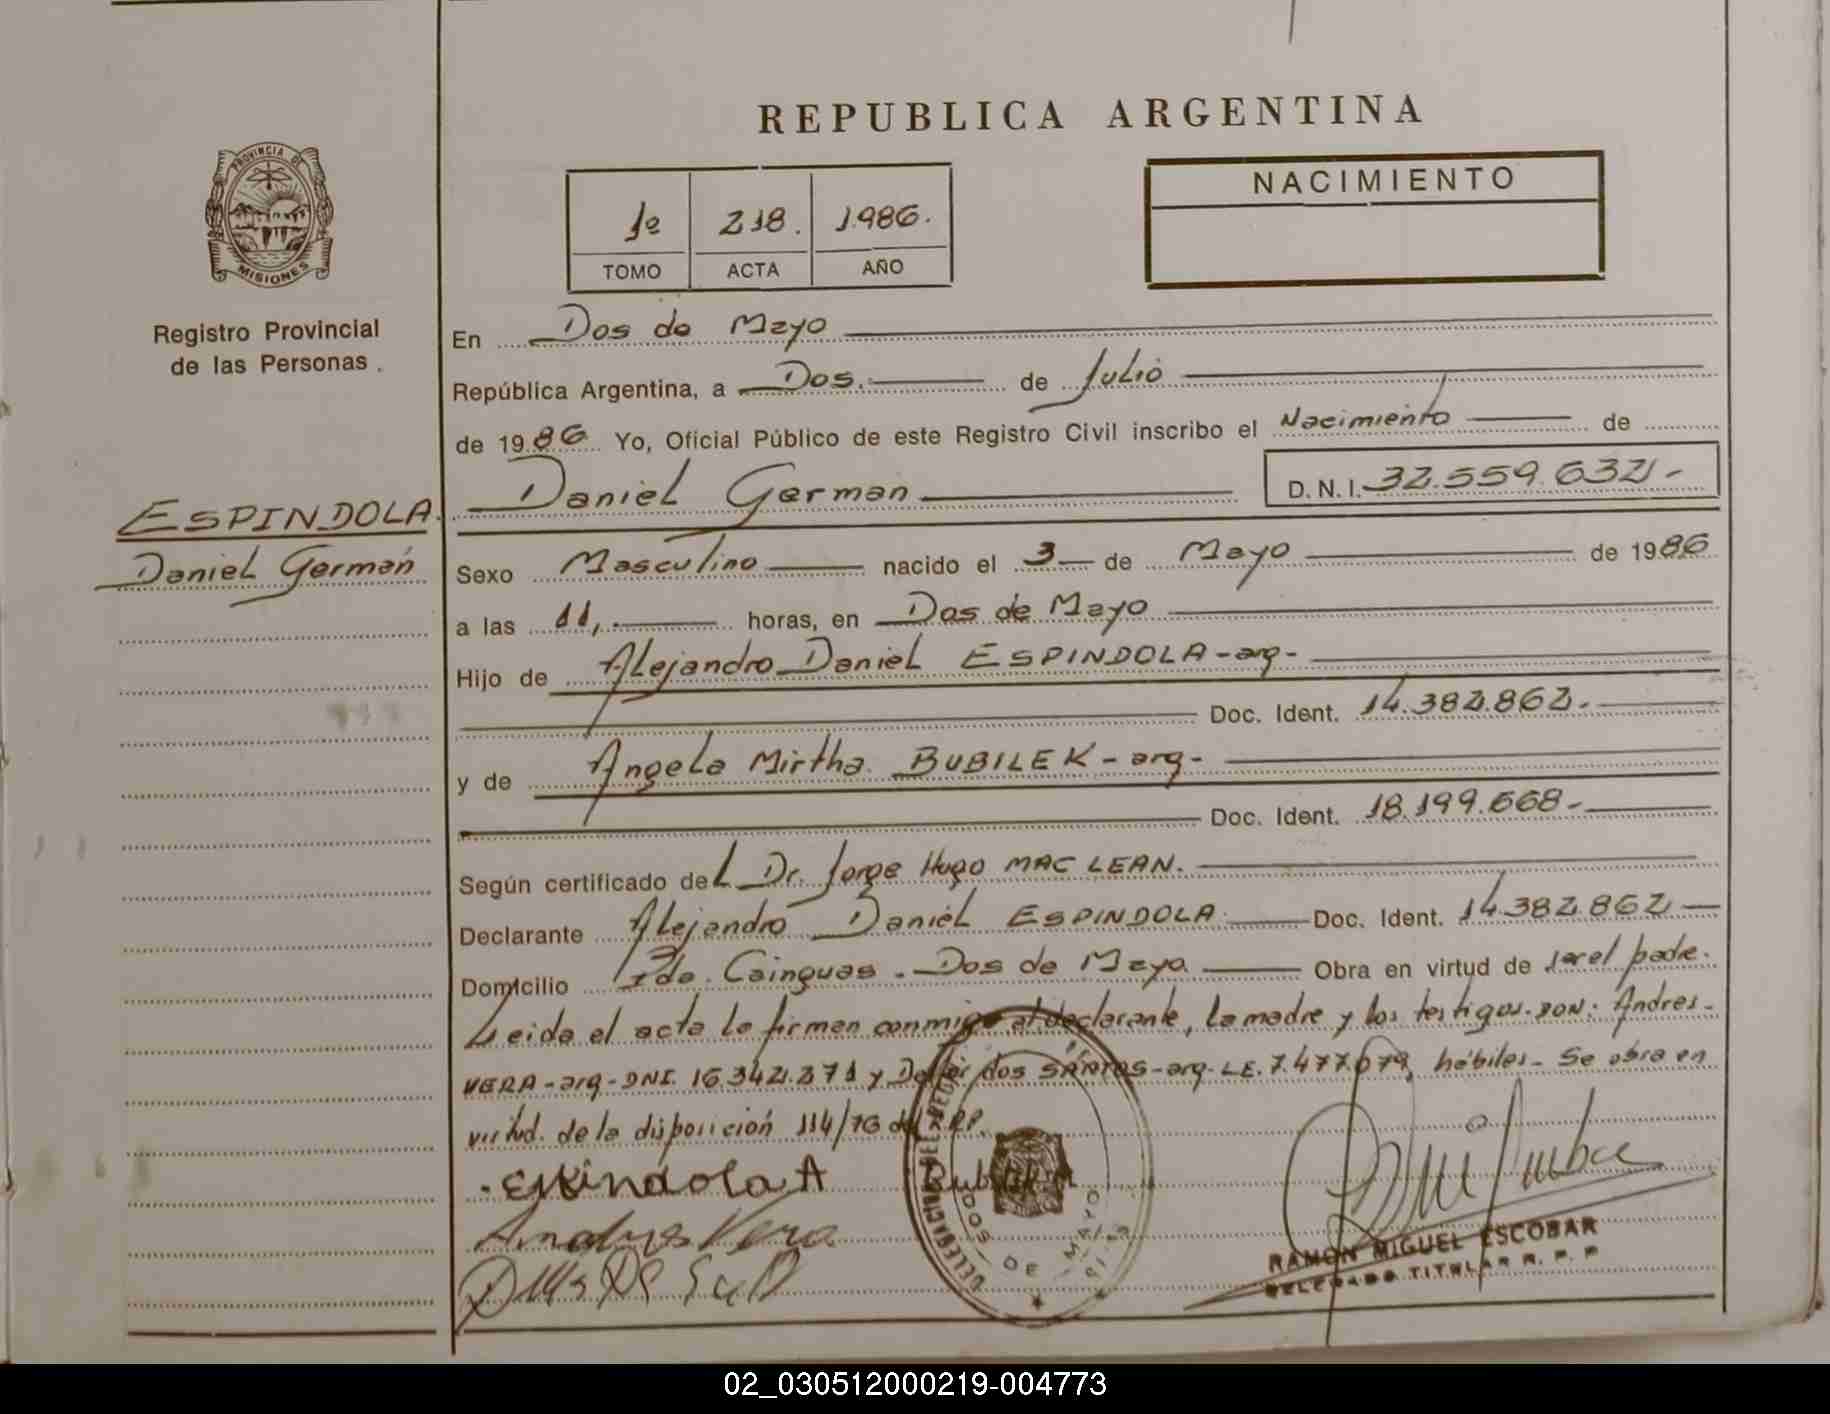 REPUBLICA ARGENTINA
PROVINCIA DE
MISIONES
Registro Provincial
de las Personas .
1º 218. 1.986.
TOMO ACTA AÑO
NACIMIENTO
En Dos de Mayo
República Argentina, a Dos. de Julio
de 1986 Yo, Oficial Público de este Registro Civil inscribo el Nacimiento de
Daniel German D. N. I. 32.559.632.-
ESPINDOLA.
Daniel Germán
Sexo Masculino nacido el 3 de Mayo de 1986
a las 11,. horas, en Dos de Mayo
Hijo de Alejandro Daniel ESPINDOLA-arg-
Doc. Ident. 14.382.862.-
y de Angela Mirtha BUBILEK-arg-
Doc. Ident. 18.199.668-
Según certificado del Dr. Jorge Hugo MAC LEAN.
Declarante Alejandro Daniel ESPINDOLA Doc. Ident. 14.382.862
Domicilio Pdo. Cainguas. Dos de Mayo Obra en virtud de ser el padre.
Leida el acta la firman conmigo el declarante, la madre y los testigos DON: Andres
VERA-arg-DNI. 16.342.271 y dos SANTOS-arg-LE. 7.477.079, hábiles- Se obra en
virtud. de la disposición 114/76 del RPP.
Espindola A
Andres Vera
DOS DE MAYO
RAMON MIGUEL ESCOBAR
DELEGADO TITULAR R. P. P.
02_030512000219-004773